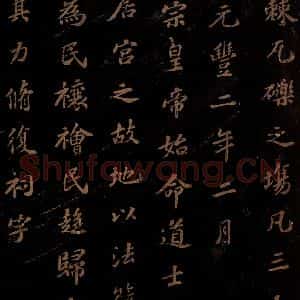 棘瓦礫之塲凡三
元豐二年二月
宗皇帝始命道士
居宮之故地以法
為民禳禬民趍歸
其力脩復祠宇
Shufawang.CN